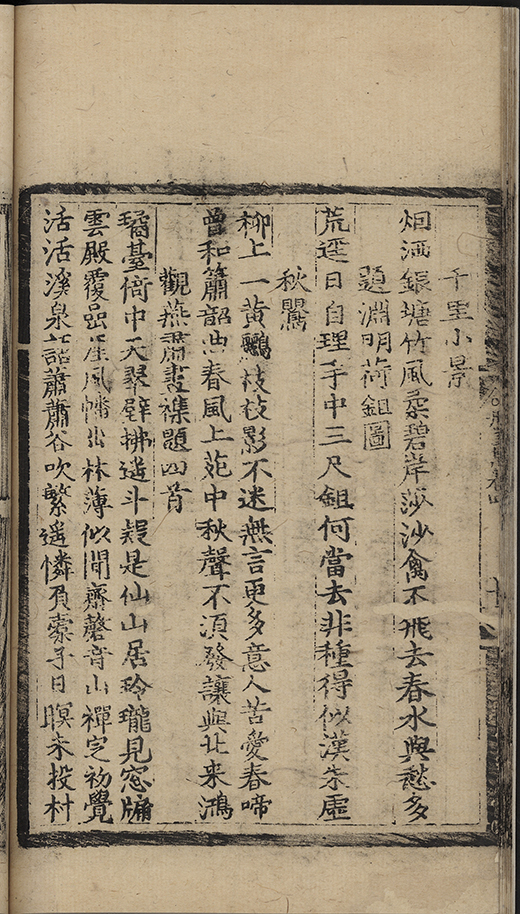 千里小景
烟洒銀塘竹風柔碧岸莎沙禽不飛去春水與愁多
題淵明荷鉏圖
荒逕日自理手中三尺鉏何當去非種得似漢朱虛
秋鸎
柳上一黃鸝枝枝影不迷無言更多意人苦愛春啼
曾和簫韶曲春風上苑中秋聲不須發讓與北来鴻
觀燕肅畫襍題四首
璚臺倚中天翠壁拂遙斗疑是仙山居玲瓏見窓牖
雲殿覆嵓崖風幡出林薄似聞齋磬音山禪定初覺
活活溪泉 蕭蕭谷吹繁遙憐負 子日暝来投村